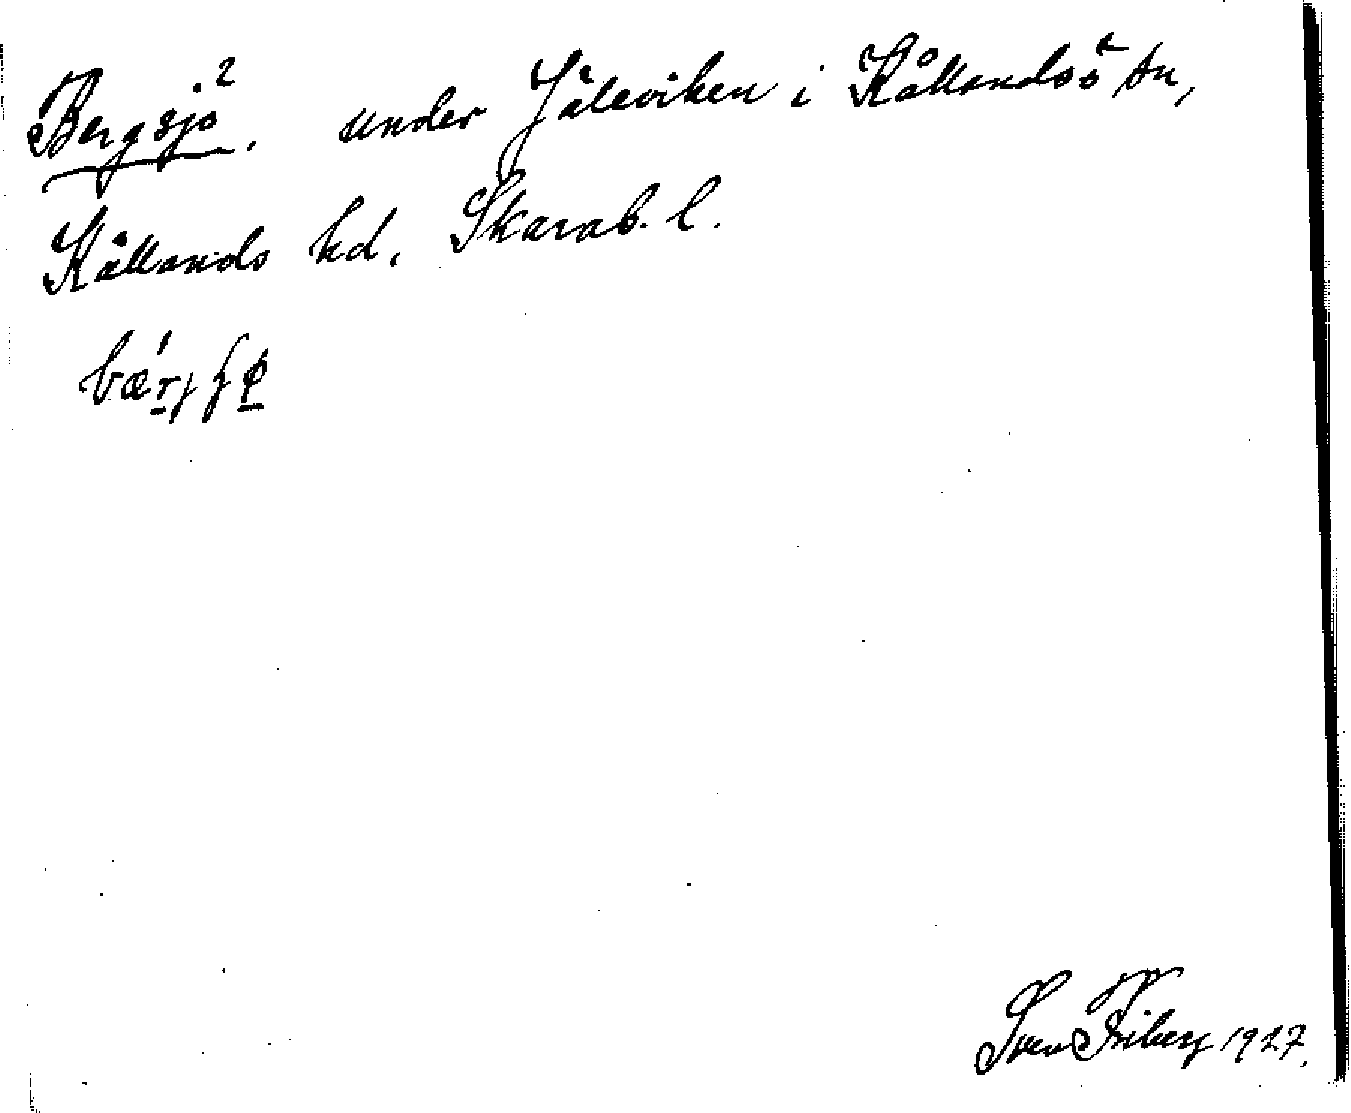 Bergsjö². under Jäleviken i Kållandsö sn,
Kållands hd. Skarab. l.
Sven Friberg 1927.